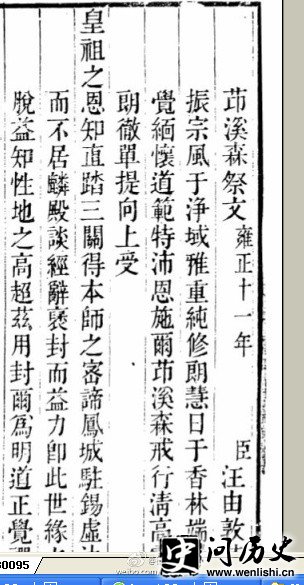 茆溪森祭文 雍正十一年 臣汪由敦
振宗風于淨域雅重純修朗慧日于香林端
覺緬懷道範特沛恩施爾茆溪森戒行清高
朗徹單提向上受
皇祖之恩知直踏三關得本師之密諦鳳城駐錫虛
而不居麟殿談經辭褒封而益力卽此世緣
脫益知性地之高超茲用封爾爲明道正覺
30095
weibo.com
史问历史
www.wenlishi.cn